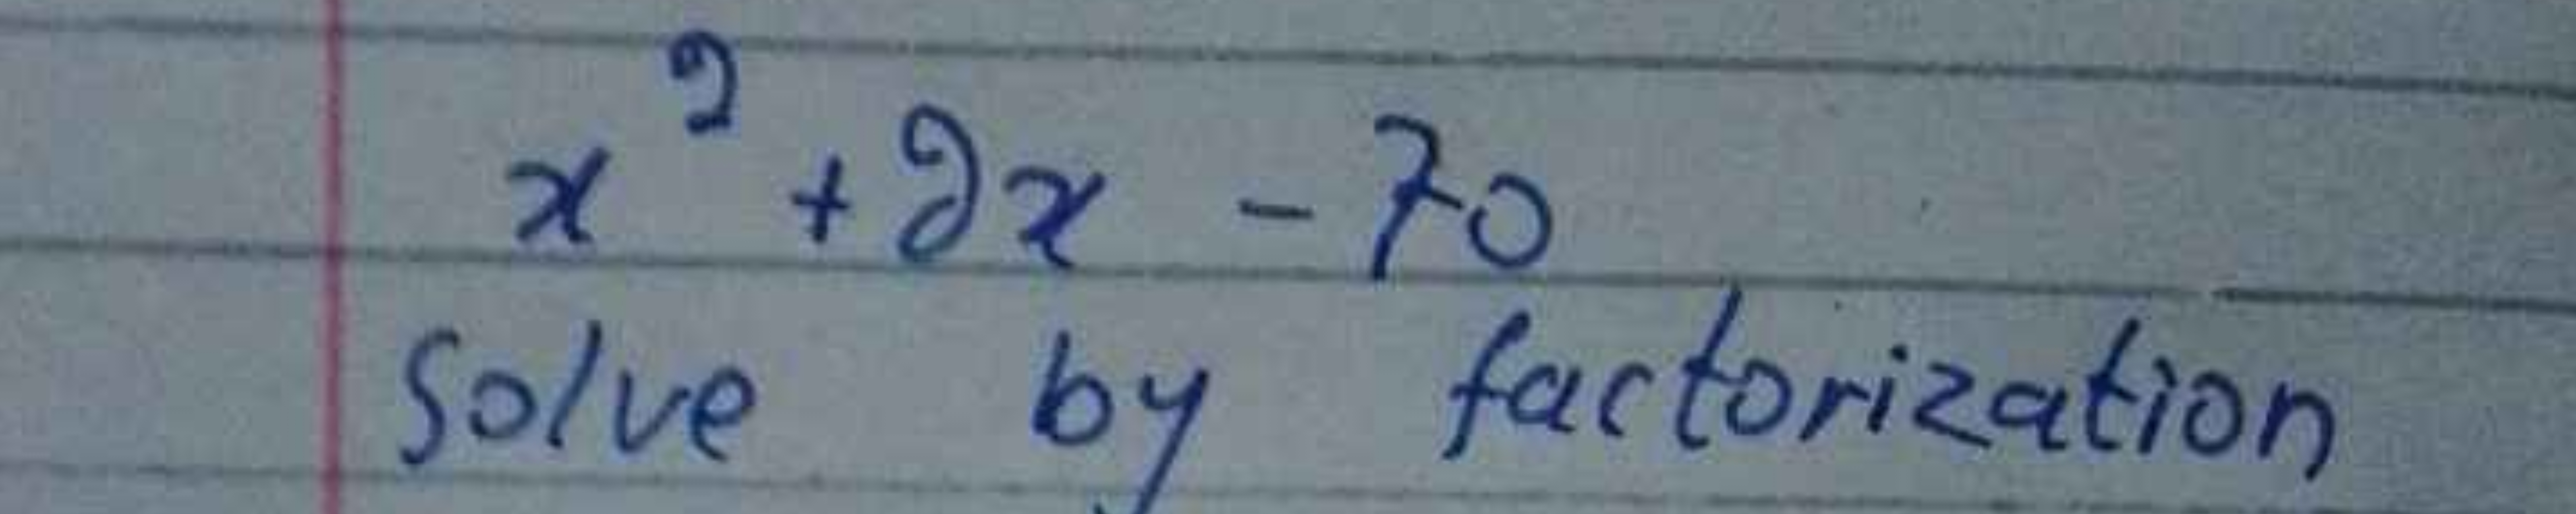 x² + 2x - 70
Solve by factorization